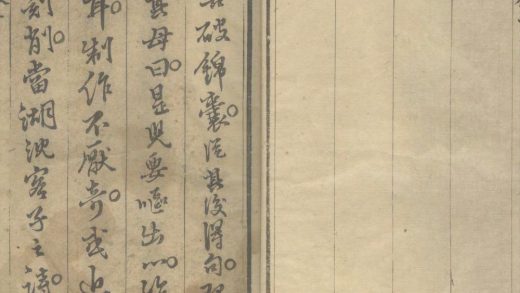 破錦囊。從其後得句。
其母曰。是兒要嘔出心
耳。制作不厭奇。或
刻削。當湖沈客子之詩。